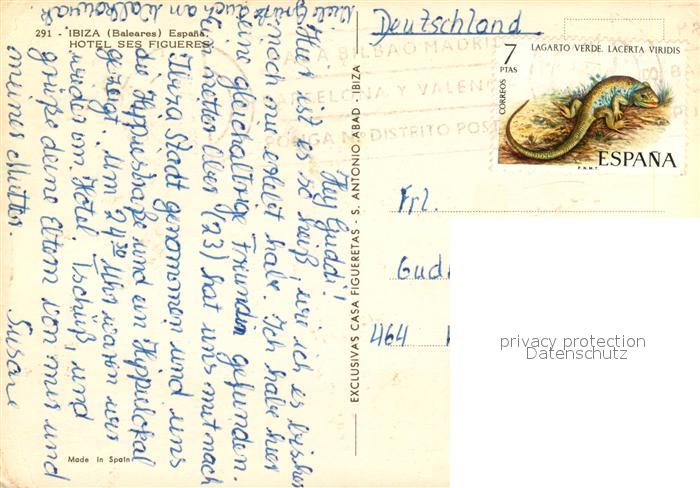 291 - IBIZA (Baleares) España.
HOTEL SES FIGUERES.
Hey Guddi!
Hier ist es so heiß, wie ich es bisher
noch nie erlebt habe. Ich habe hier
eine gleichaltrige Freundin gefunden.
Ihr (23) hat uns mit nach
Ibiza Stadt genommen und uns
die Hippiestraße und ein Hippielokal
gezeigt. Um 24³⁰ Uhr waren wir
wieder am Hotel. Tschüß, und
grüße deine Eltern von mir und
meiner Mutter.
Susanne
Viele Grüße auch an
Made in Spain
EXCLUSIVAS CASA FIGUERETAS - S. ANTONIO ABAD - IBIZA
Deutschland
BILBAO MADRID
BARCELONA Y VALENCIA
PONGA Nº DISTRITO POSTAL
7 PTAS
LAGARTO VERDE. LACERTA VIRIDIS
CORREOS
ESPAÑA
F.N.M.T.
Frl.
Gud
464
privacy protection
Datenschutz